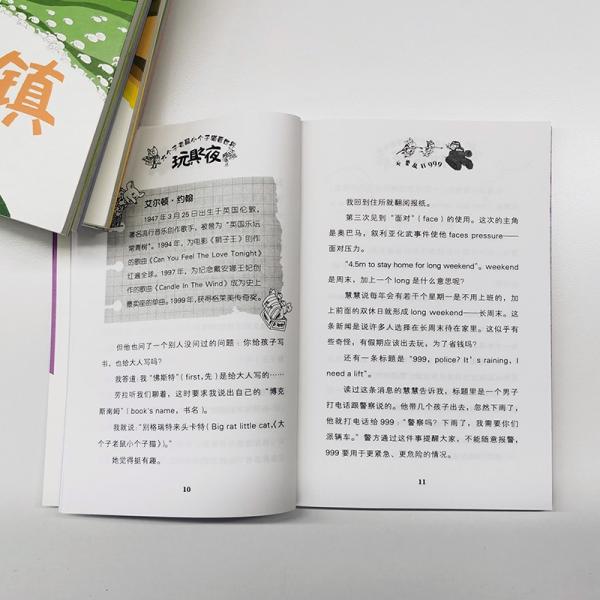 镇
大个子老鼠小个子猫看世界
玩具夜
艾尔顿·约翰
1947年3月25日出生于英国伦敦，
著名流行音乐创作歌手，被誉为“英国乐坛
常青树”。1994年，为电影《狮子王》创作
的歌曲《Can You Feel The Love Tonight》
红遍全球。1997年，为纪念戴安娜王妃创
作的歌曲《Candle In The Wind》成为史上
最卖座的单曲。1999年，获得格莱美传奇奖。
但他也问了一个别人没问过的问题：你给孩子写
书，也给大人写吗？
我答道：我“佛斯特”（first，先）是给大人写的……
劳拉听我们聊着，这时要求我说出自己的“博克
斯南姆”（book's name，书名）。
我就说：“别格瑞特来头卡特（Big rat little cat，《大
个子老鼠小个子猫》）。”
她觉得挺有趣。
10
不要乱打999
我回到住所就翻阅报纸。
第三次见到“面对”（face）的使用。这次的主角
是奥巴马，叙利亚化武事件使他faces pressure——
面对压力。
“4.5m to stay home for long weekend”。weekend
是周末，加上一个long是什么意思呢？
慧慧说每年会有若干个星期一是不用上班的，加
上前面的双休日就形成long weekend——长周末。这
条新闻是说许多人选择在长周末待在家里。这似乎有
些奇怪，有假期应该出去玩，为了省钱吗？
还有一条标题是“999，police? It's raining, I
need a lift”。
读过这条消息的慧慧告诉我，标题里是一个男子
打电话跟警察说的。他带几个孩子出去，忽然下雨了，
他就打电话给999：“警察吗？下雨了，我需要你们
派辆车。”警方通过这件事提醒大家，不能随意报警，
999要用于更紧急、更危险的情况。
11